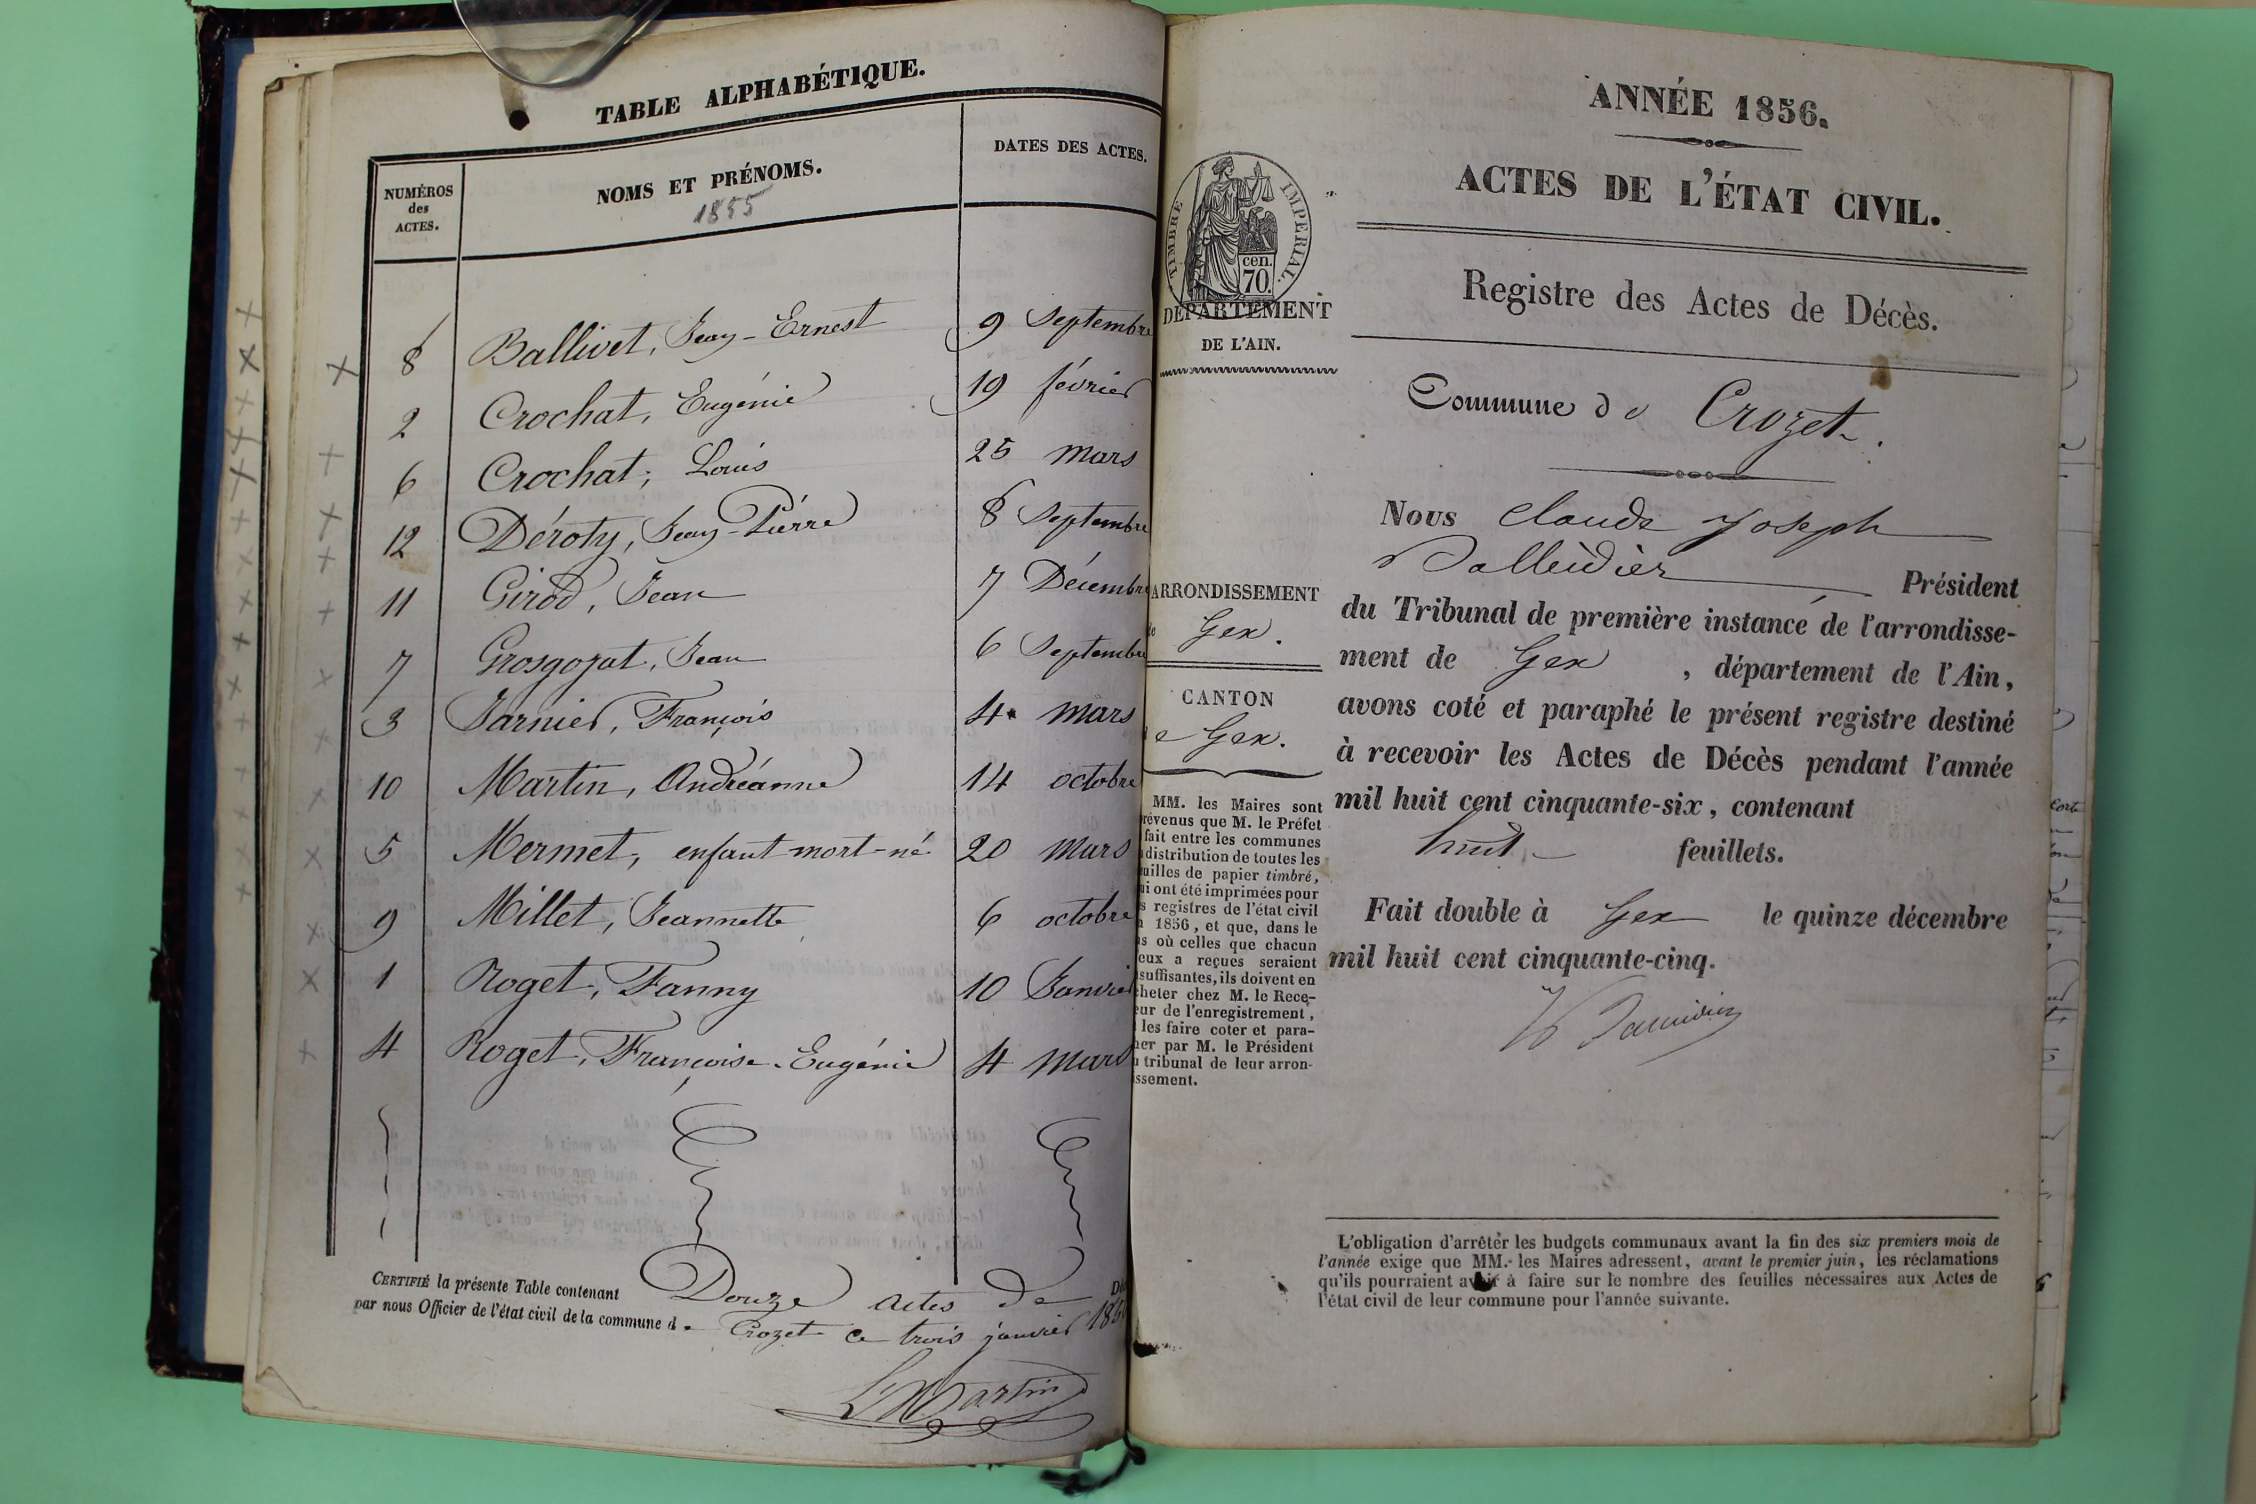 TABLE ALPHABÉTIQUE.
NUMÉROS des ACTES.
NOMS ET PRÉNOMS.
1855
DATES DES ACTES.
8 Ballivet, Jean-Ernest 9 Septembre
2 Crochat, Eugénie 19 février
6 Crochat, Louis 25 mars
12 Déroty, Jean-Pierre 8 Septembre
11 Girod, Jean 7 Décembre
7 Grosgojat, Jean 6 Septembre
3 Jarnier, François 4 mars
10 Martin, Andréanne 14 octobre
5 Mermet, enfant mort-né 20 mars
9 Millet, Jeannette 6 octobre
1 Roget, Fanny 10 Janvier
4 Roget, Françoise-Eugénie 4 mars
CERTIFIÉ la présente Table contenant Douze actes de Dé
par nous Officier de l'état civil de la commune de Crozet ce trois janvier 185
L Martin
ANNÉE 1856.
ACTES DE L'ÉTAT CIVIL.
TIMBRE IMPERIAL.
cen.
70.
DÉPARTEMENT
DE L'AIN.
Registre des Actes de Décès.
Commune de Crozet.
ARRONDISSEMENT
de Gex.
CANTON
de Gex.
MM. les Maires sont
révenus que M. le Préfet
fait entre les communes
distribution de toutes les
uilles de papier timbré,
ui ont été imprimées pour
s registres de l'état civil
n 1856, et que, dans le
as où celles que chacun
eux a reçues seraient
suffisantes, ils doivent en
cheter chez M. le Rece-
eur de l'enregistrement,
les faire coter et para-
her par M. le Président
u tribunal de leur arron-
issement.
Nous Claude Joseph
Président
du Tribunal de première instance de l'arrondisse-
ment de Gex, département de l'Ain,
avons coté et paraphé le présent registre destiné
à recevoir les Actes de Décès pendant l'année
mil huit cent cinquante-six, contenant
huit feuillets.
Fait double à Gex le quinze décembre
mil huit cent cinquante-cinq.
L'obligation d'arrêter les budgets communaux avant la fin des six premiers mois de
l'année exige que MM. les Maires adressent, avant le premier juin, les réclamations
qu'ils pourraient avoir à faire sur le nombre des feuilles nécessaires aux Actes de
l'état civil de leur commune pour l'année suivante.